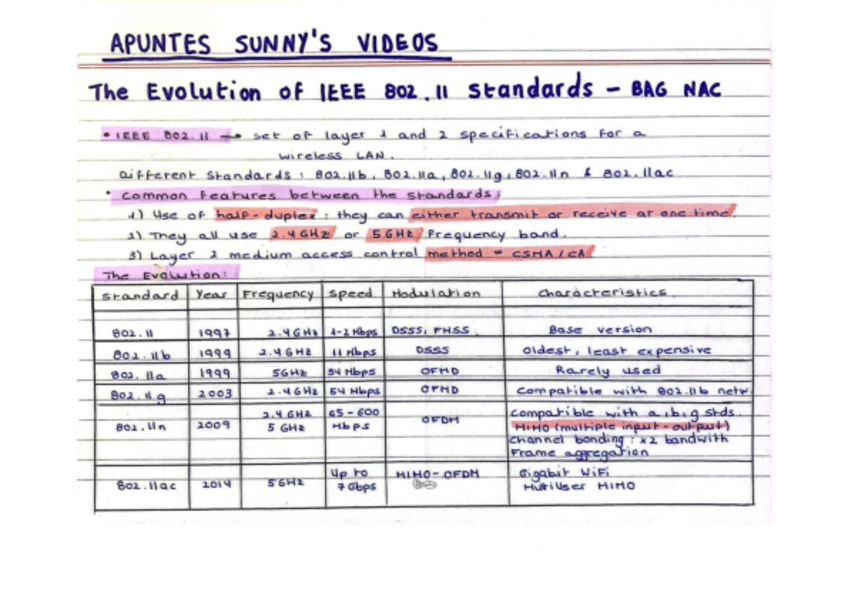 APUNTES SUNNY'S VIDEOS
The Evolution of IEEE 802.11 Standards - BAG NAC
• IEEE 802.11 → set of layer 1 and 2 specifications for a
wireless LAN.
Different standards: 802.11b, 802.11a, 802.11g, 802.11n & 802.11ac
• Common features between the standards:
1) Use of half-duplex: they can either transmit or receive at one time.
2) They all use 2.4GHz or 5GHz Frequency band.
3) Layer 2 medium access control method = CSMA/CA
The Evolution:
Standard Year Frequency Speed Modulation Characteristics
802.11 1997 2.4GHz 1-2 Mbps DSSS, FHSS Base version
802.11b 1999 2.4GHz 11 Mbps DSSS Oldest, least expensive
802.11a 1999 5GHz 54 Mbps OFMD Rarely used
802.11g 2003 2.4GHz 54 Mbps OFMD Compatible with 802.11b netw.
802.11n 2009 2.4GHz 5GHz 65-600 Mbps OFDM Compatible with a,b,g stds.
MIMO (multiple input-output)
channel bonding: x2 bandwith
Frame aggregation
802.11ac 2014 5GHz Up to 7Gbps MIMO-OFDM Gigabit WiFi
MultiUser MIMO